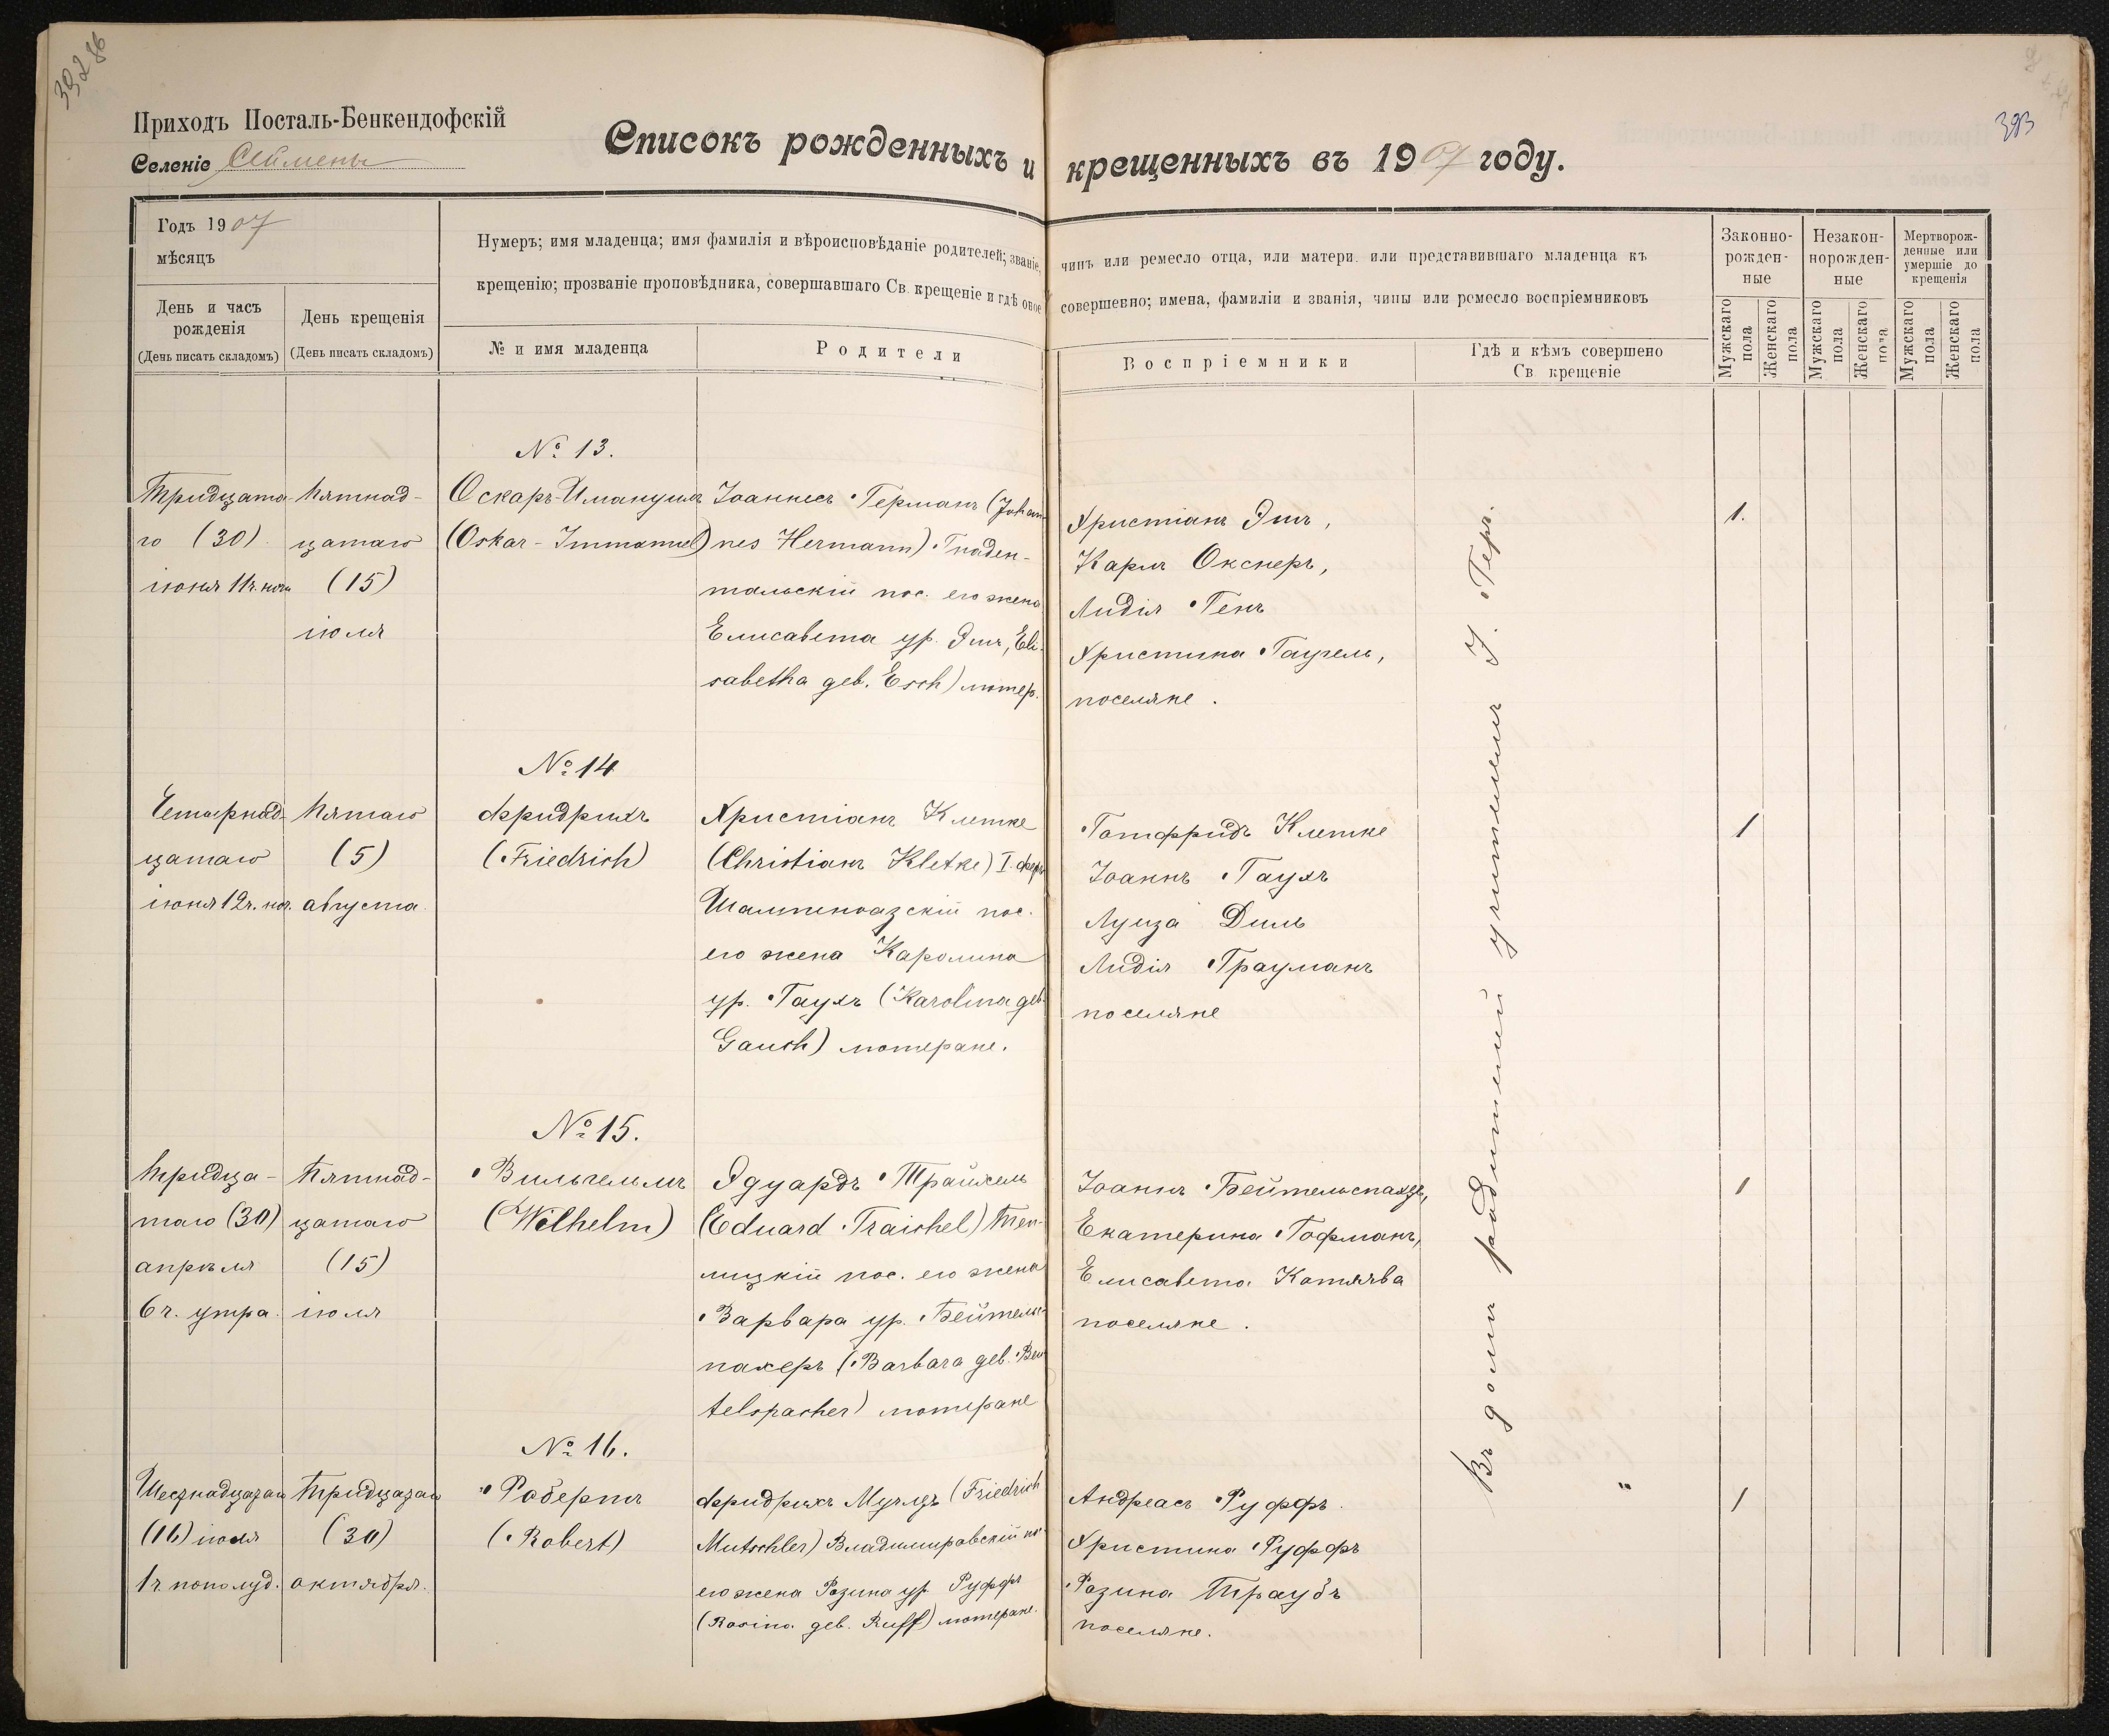 393
Приходъ Посталь-Бенкендофскій
Селеніе Сеймены
Списокъ рожденныхъ и крещенныхъ въ 1907 году.
Годъ 1907
мѣсяцъ
День и часъ
рожденія
(День писать складомъ)
День крещенія
(День писать складомъ)
Нумеръ; имя младенца; имя фамилія и вѣроисповѣданіе родителей; званіе, чинъ или ремесло отца, или матери, или представившаго младенца къ
крещенію; прозваніе проповѣдника, совершавшаго Св. крещеніе и гдѣ оное совершенно; имена, фамиліи и званія, чины или ремесло воспріемниковъ
№ и имя младенца
Родители
Воспріемники
Гдѣ и кѣмъ совершено
Св. крещеніе
Законно-
рожден-
ные
Незакон-
норожден-
ные
Мертворож-
денные или
умершіе до
крещенія
Мужскаго
пола
Женскаго
пола
Мужскаго
пола
Женскаго
пола
Мужскаго
пола
Женскаго
пола
№ 13.
Тридцата-
го (30)
іюня 11 ч. ночи
Пятнад-
цатаго
(15)
іюля
Оскаръ-Имануилъ
(Oskar-Immanuel)
Іоаннесъ Германъ (Johan-
nes Hermann) Гнаден-
тальскій пос. его жена
Елисавета ур. Эшъ, Eli-
sabetha geb. Esch) лютер.
Христіанъ Эшъ,
Карлъ Окснеръ,
Лидія Генъ
Христина Гаугель,
поселяне.
1.
№ 14
Четырнад-
цатаго
іюня 12 ч. ноч.
Пятаго
(5)
августа
Фридрихъ
(Friedrich)
Христіанъ Клетке
(Christianъ Kletke) I. Фер
Шампеноазскій пос.
его жена Каролина
ур. Гаухъ (Karolina geb.
Gauch) лютеране.
Готфридъ Клетке
Іоаннъ Гаухъ
Луиза Диль
Лидія Грауманъ
поселяне
1
№ 15.
Тридца-
таго (30)
апрѣля
6 ч. утра.
Пятнад-
цатаго
(15)
іюля
Вильгельмъ
(Wilhelm)
Эдуардъ Трайхель
(Eduard Traichel) Теп-
лицкій пос. его жена
Варвара ур. Бейтельс-
пахеръ (Barbara geb. Beu
telspacher) лютеране
Іоаннъ Бейтельспахеръ,
Екатерина Гофманъ,
Елисавета
поселяне.
1
№ 16.
(16) іюля
1 ч пополуд.
(30)
октября.
Робертъ
(Robert)
Фридрихъ Мучлеръ (Friedrich
Mutschler) Владимировскій по
его жена Розина ур. Руффъ
(Rosina geb. Ruff) лютеране.
Андреасъ Руффъ.
Христина Руффъ
Розина Траубъ
поселяне.
1
Въ домѣ родителей учителемъ І. Герг.
"